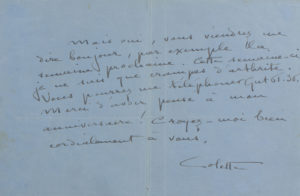 Mais oui, vous viendrez me
dire bonjour, par exemple la
semaine prochaine. Cette semaine-ci
je ne suis que crampes d'arthrite.
Vous pourrez me téléphoner Gut 61-36.
Merci d'avoir pensé à mon
anniversaire! Croyez-moi bien
cordialement à vous,
Colette